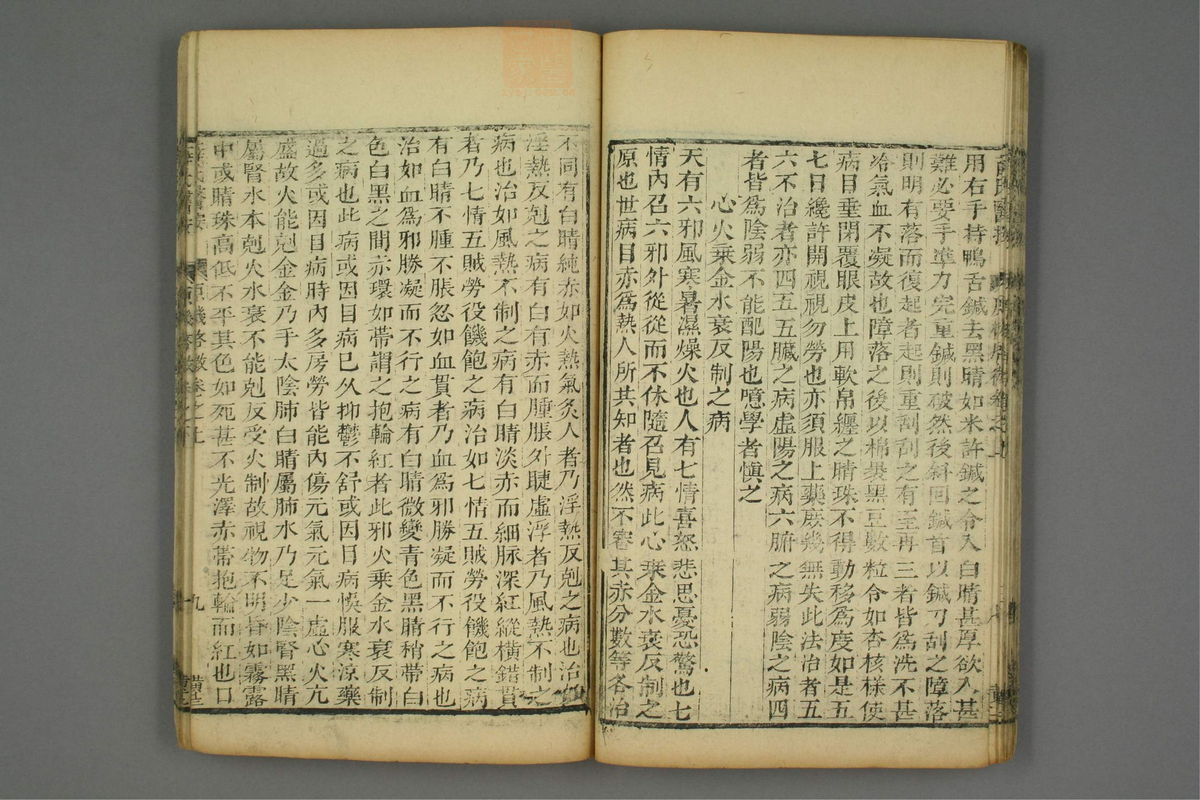 用右手持鴨舌鍼去黑睛如米許鍼之令入白睛甚厚欲入甚
難必要手準力完重鍼則破然後斜回鍼首以鍼刀刮之障落
則明有落而復起者起則重刮刮之有至再三者皆爲洗不甚
冷氣血不凝故也障落之後以棉裹黑豆數粒令如杏核樣使
病目垂閉覆眼皮上用軟帛纏之睛珠不得動移爲度如是五
七日纔許開視視勿勞也亦須服上藥庶幾無失此法治者五
六不治者亦四五五臟之病虛陽之病六腑之病弱陰之病四
者皆爲陰弱不能配陽也噫學者慎之
心火乗金水衰反制之病
天有六邪風寒暑濕燥火也人有七情喜怒悲思憂恐驚也七
情內召六邪外從從而不休隨召見病此心乗金水衰反制之
原也世病目赤爲熱人所共知者也然不審其赤分數等各治
不同有白睛純赤如火熱氣炙人者乃淫熱反剋之病也治如
淫熱反剋之病有白有赤而腫脹外睫虛浮者乃風熱不制之
病也治如風熱不制之病有白睛淡赤而細脉深紅縱橫錯貫
者乃七情五賊勞役饑飽之病治如七情五賊勞役饑飽之病
有白睛不腫不脹忽如血貫者乃血爲邪勝凝而不行之病也
治如血爲邪勝凝而不行之病有白睛微變青色黑睛稍帶白
色白黑之間赤環如帶謂之抱輪紅者此邪火乗金水衰反制
之病也此病或因目病已久抑鬱不舒或因目病悞服寒涼藥
過多或因目病時內多房勞皆能內傷元氣元氣一虛心火亢
盛故火能剋金金乃手太陰肺白睛屬肺水乃足少陰腎黑睛
屬腎水本剋火水衰不能剋反受火制故視物不明昏如霧露
中或睛珠高低不平其色如死甚不光澤赤帶抱輪而紅也口
原機啓微卷之上
九